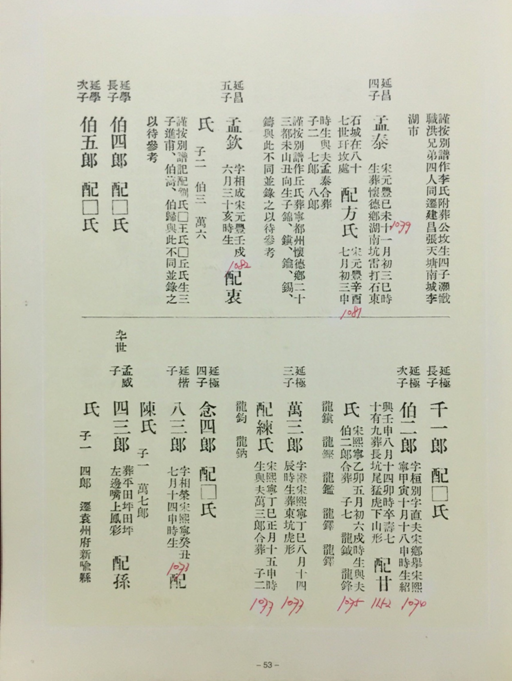 謹按別譜作李氏附葬公坟生四子灝戩
職洪兄弟四人同遷建昌張天塘南城李
湖市
延昌
四子
孟泰
宋元豐已未十一月初三巳時
生葬懷德鄉湖南坑雷打石東
1079
石城在八十
七世玕坟處
配方氏
宋元豐辛酉
七月初三申
1081
時生與夫孟泰合葬
子二 七郎 八郎
謹按別譜作丘氏葬寧都州懷德鄉二十
三都未山丑向生子錦、鎮、鑰、錫、
鑄與此不同並錄之以待參考
延昌
五子
孟欽
字相成宋元豐壬戌
六月三十亥時生
1082
配衷
氏
子二 伯三 萬六
謹按別譜記配衷氏□王氏□丘氏生三
子進甫、伯高、伯歸與此不同並錄之
以待參考
延學
長子
伯四郎 配□氏
延學
次子
伯五郎 配□氏
延極
長子
千一郎 配□氏
延極
次子
伯二郎
字桓別字直夫宋鄉舉宋熙
寧甲寅十月十八申時生紹
1074
興壬申八月十四卯時卒壽七
十有九葬長坑尾猛虎下山形
1152
配甘
氏
宋熙寧乙卯五月初六戌時生與夫
伯二郎合葬 子七 龍鉞 龍鋒
1075
龍鑌 龍鏗 龍鑑 龍鐸 龍鐸
延極
三子
萬三郎
字澄宋熙寧丁巳八月十四
辰時生葬東坑虎形
1077
配練氏
宋熙寧丁巳正月十五申時
生與夫萬三郎合葬 子二
1077
龍鈞 龍鈉
延極
四子
念四郎 配□氏
延楷
子
八三郎
字相榮宋熙寧癸丑
七月十四申時生
1073
配
陳氏
子一 萬七郎
卆世
孟威
子
四三郎
葬平田坪田坪
左邊嘴上鳳彩
配孫
氏
子一 四郎 遷袁州府新喻縣
－53－